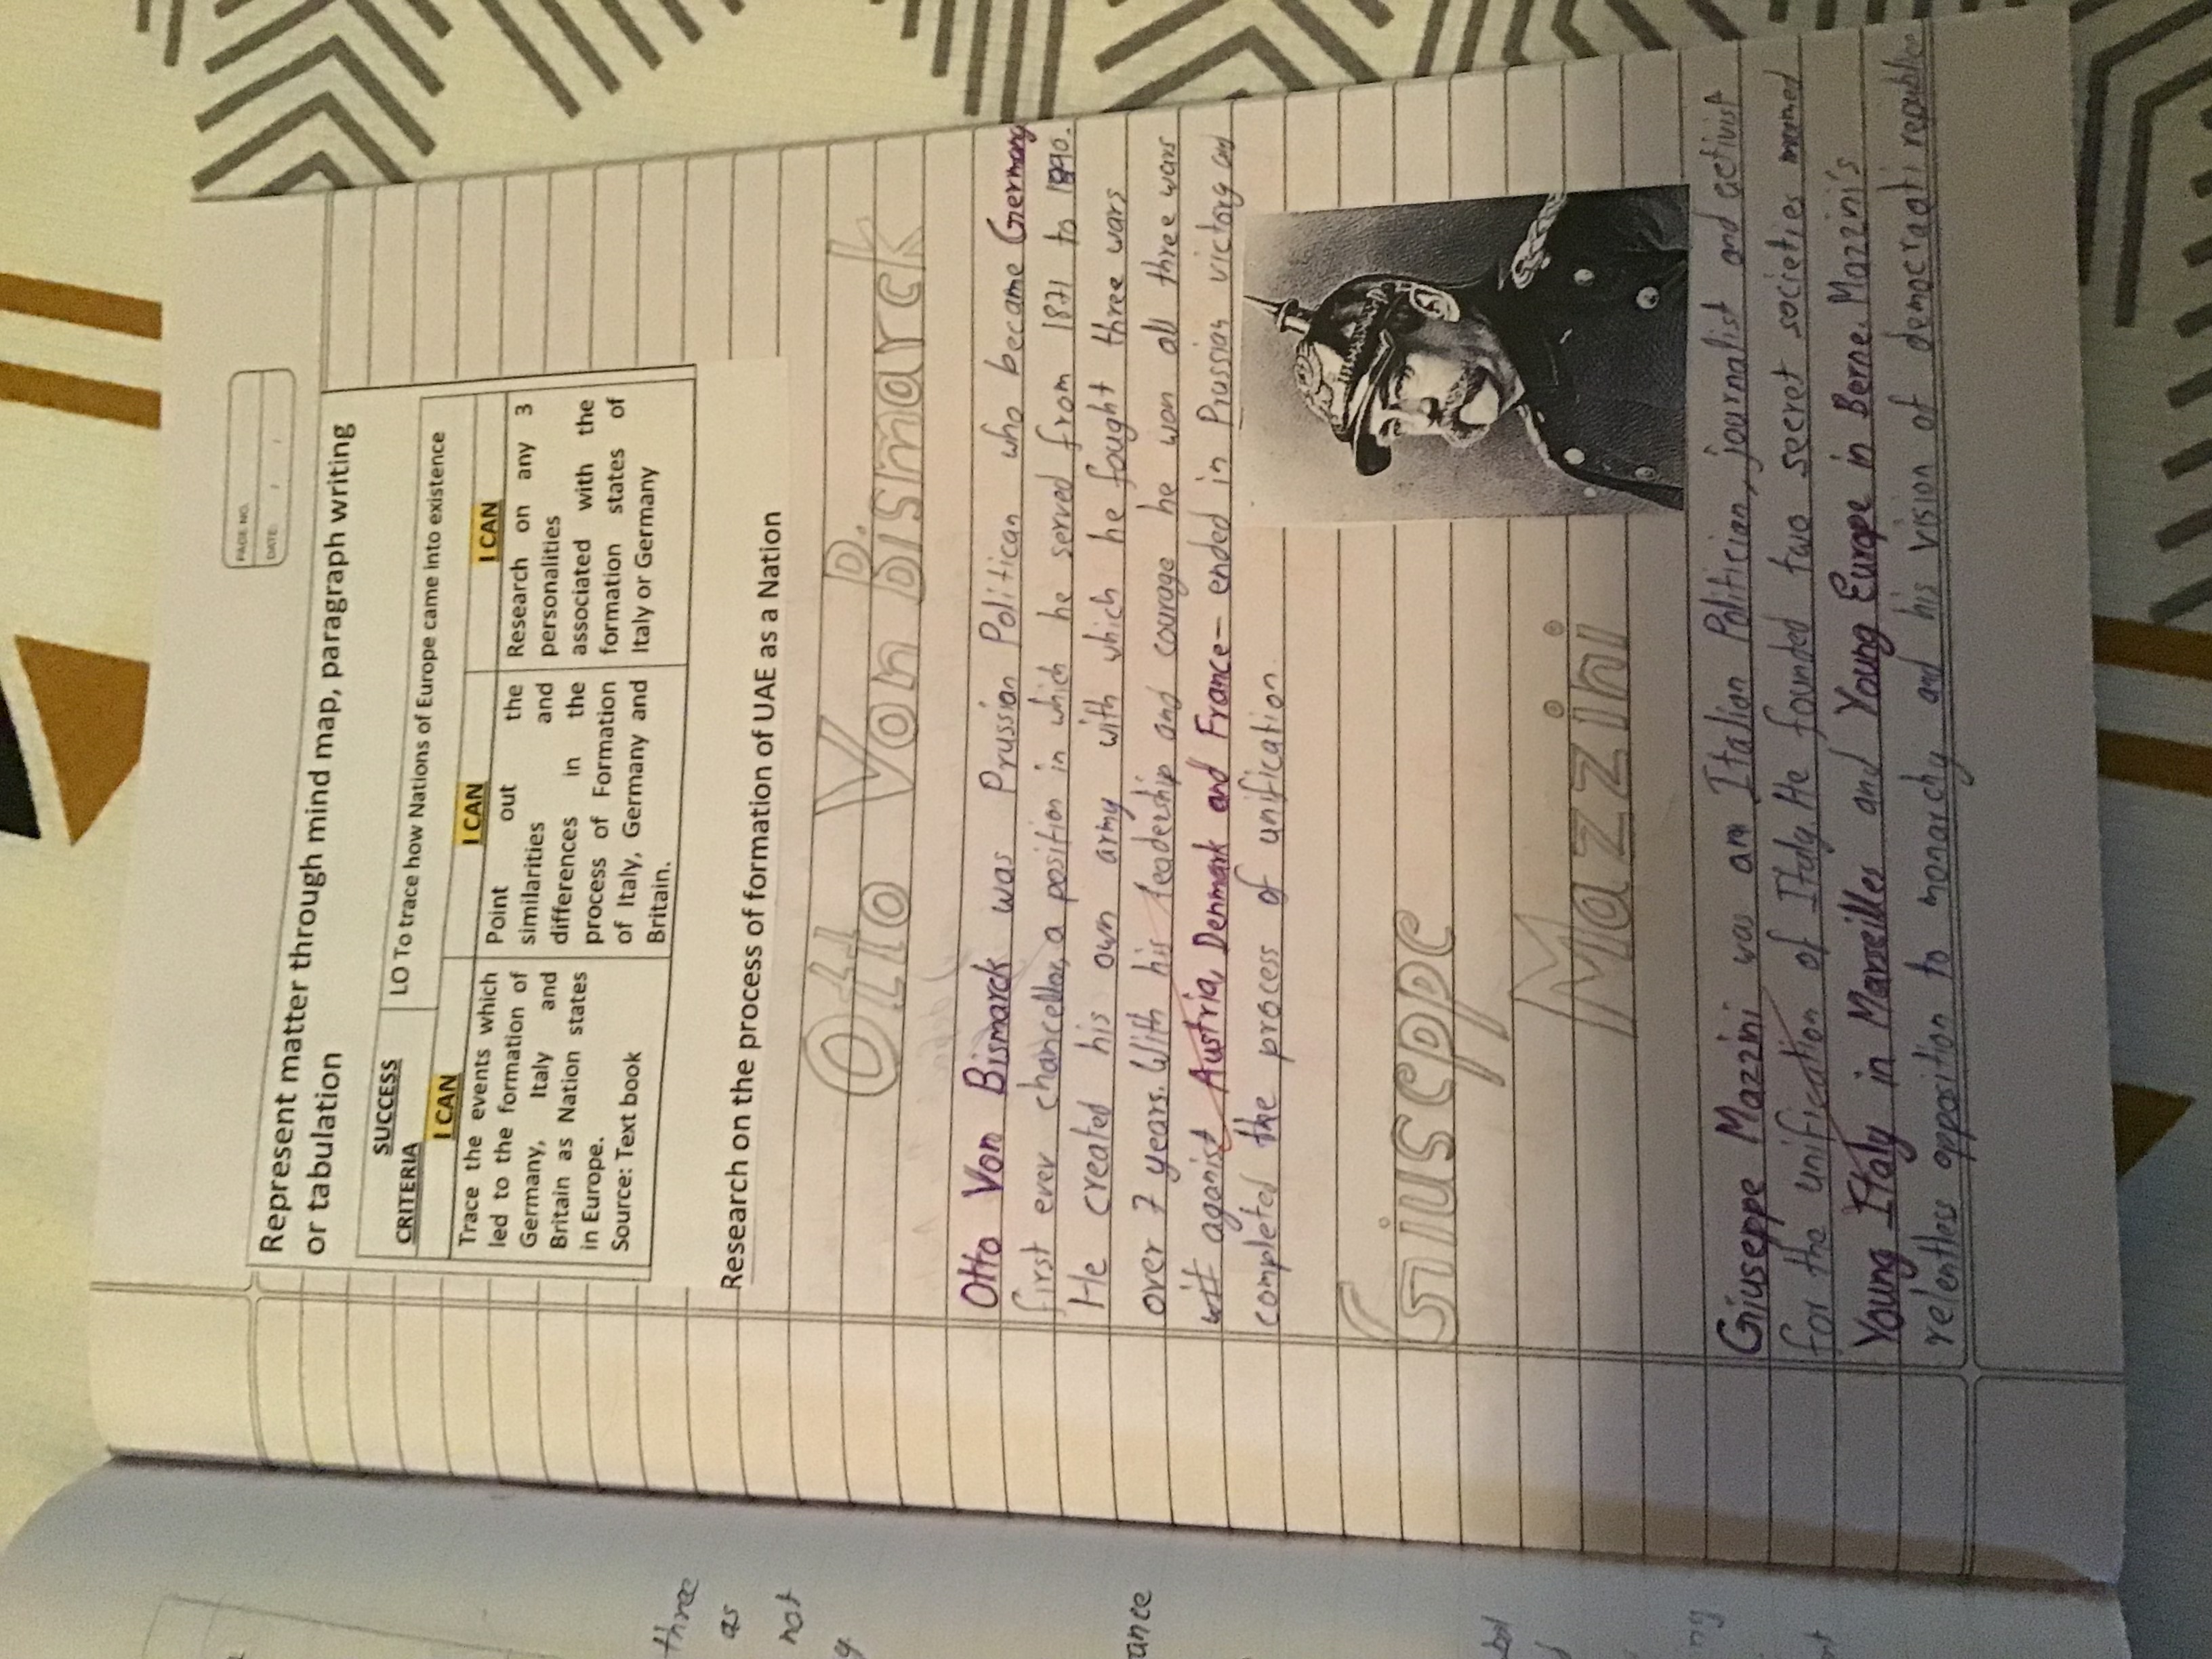 three
as
not
y.
ance
ing
PAGE NO.
DATE: / /
Represent matter through mind map, paragraph writing
or tabulation
SUCCESS
CRITERIA
LO To trace how Nations of Europe came into existence
I CAN
Trace the events which
led to the formation of
Germany, Italy and
Britain as Nation states
in Europe.
Source: Text book
I CAN
Point out the
similarities and
differences in the
process of Formation
of Italy, Germany and
Britain.
I CAN
Research on any 3
personalities
associated with the
formation states of
Italy or Germany
Research on the process of formation of UAE as a Nation
Otto Von Bismarck
Otto Von Bismarck was Prussian Politican who became Germany
first ever chancellor, a position in which he served from 1871 to 1890.
He created his own army with which he fought three wars
over 7 years. With his leadership and courage he won all three wars
wit aganist Austria, Denmark and France- ended in Prussian victory and
completed the process of unification
Giuseppe
Mazzini
Giuseppe Mazzini was an Italian Politician, journalist and activist
for the unification of Italy. He founded two secret societies named
Young Italy in Marseilles and Young Europe in Berne. Mazzini's
relentless opposition to monarchy and his vision of democraati republics